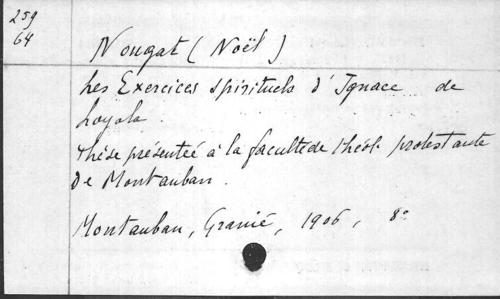 259
64
Nougat (Noël)
Les Exercices spirituels d'Ignace de
Loyola.
Thèse présentée à la faculté de théol. protestante
De Montauban.
Montauban, Granié, 1906, 8°